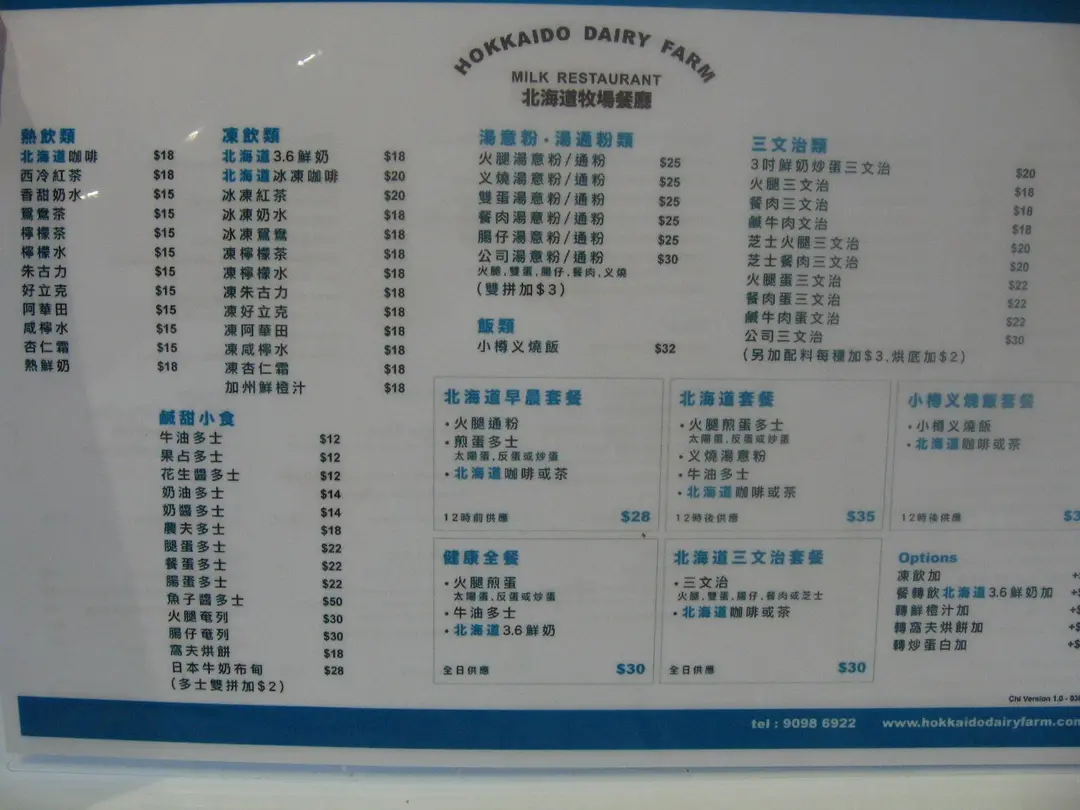 HOKKAIDO DAIRY FARM
MILK RESTAURANT
北海道牧場餐廳
熱飲類
北海道咖啡 $18
西冷紅茶 $18
香甜奶水 $15
鴛鴦茶 $15
檸檬茶 $15
檸檬水 $15
朱古力 $15
好立克 $15
阿華田 $15
咸檸水 $15
杏仁霜 $15
熱鮮奶 $18
凍飲類
北海道3.6鮮奶 $18
北海道冰凍咖啡 $20
冰凍紅茶 $20
冰凍奶水 $18
冰凍鴛鴦 $18
凍檸檬茶 $18
凍檸檬水 $18
凍朱古力 $18
凍好立克 $18
凍阿華田 $18
凍咸檸水 $18
凍杏仁霜 $18
加州鮮橙汁 $18
鹹甜小食
牛油多士 $12
果占多士 $12
花生醬多士 $12
奶油多士 $14
奶醬多士 $14
農夫多士 $18
腿蛋多士 $22
餐蛋多士 $22
腸蛋多士 $22
魚子醬多士 $50
火腿奄列 $30
腸仔奄列 $30
窩夫烘餅 $18
日本牛奶布甸 $28
(多士雙拼加$2)
湯意粉．湯通粉類
火腿湯意粉/通粉 $25
义燒湯意粉/通粉 $25
雙蛋湯意粉/通粉 $25
餐肉湯意粉/通粉 $25
腸仔湯意粉/通粉 $25
公司湯意粉/通粉 $30
火腿,雙蛋,腸仔,餐肉,义燒
(雙拼加$3)
飯類
小樽义燒飯 $32
三文治類
3吋鮮奶炒蛋三文治 $20
火腿三文治 $18
餐肉三文治 $18
鹹牛肉文治 $18
芝士火腿三文治 $20
芝士餐肉三文治 $20
火腿蛋三文治 $22
餐肉蛋三文治 $22
鹹牛肉蛋文治 $22
公司三文治 $30
(另加配料每種加$3,烘底加$2)
北海道早晨套餐
・火腿通粉
・煎蛋多士
太陽蛋,反蛋或炒蛋
・北海道咖啡或茶
12時前供應 $28
北海道套餐
・火腿煎蛋多士
太陽蛋,反蛋或炒蛋
・义燒湯意粉
・牛油多士
・北海道咖啡或茶
12時後供應 $35
小樽义燒飯套餐
・小樽义燒飯
・北海道咖啡或茶
12時後供應 $3
健康全餐
・火腿煎蛋
太陽蛋,反蛋或炒蛋
・牛油多士
・北海道3.6鮮奶
全日供應 $30
北海道三文治套餐
・三文治
火腿,雙蛋,腸仔,餐肉或芝士
・北海道咖啡或茶
全日供應 $30
Options
凍飲加 +
餐轉飲北海道3.6鮮奶加 +$
轉鮮橙汁加 +$
轉窩夫烘餅加 +$
轉炒蛋白加 +$
Chi Version 1.0 - 03
tel : 9098 6922 www.hokkaidodairyfarm.com